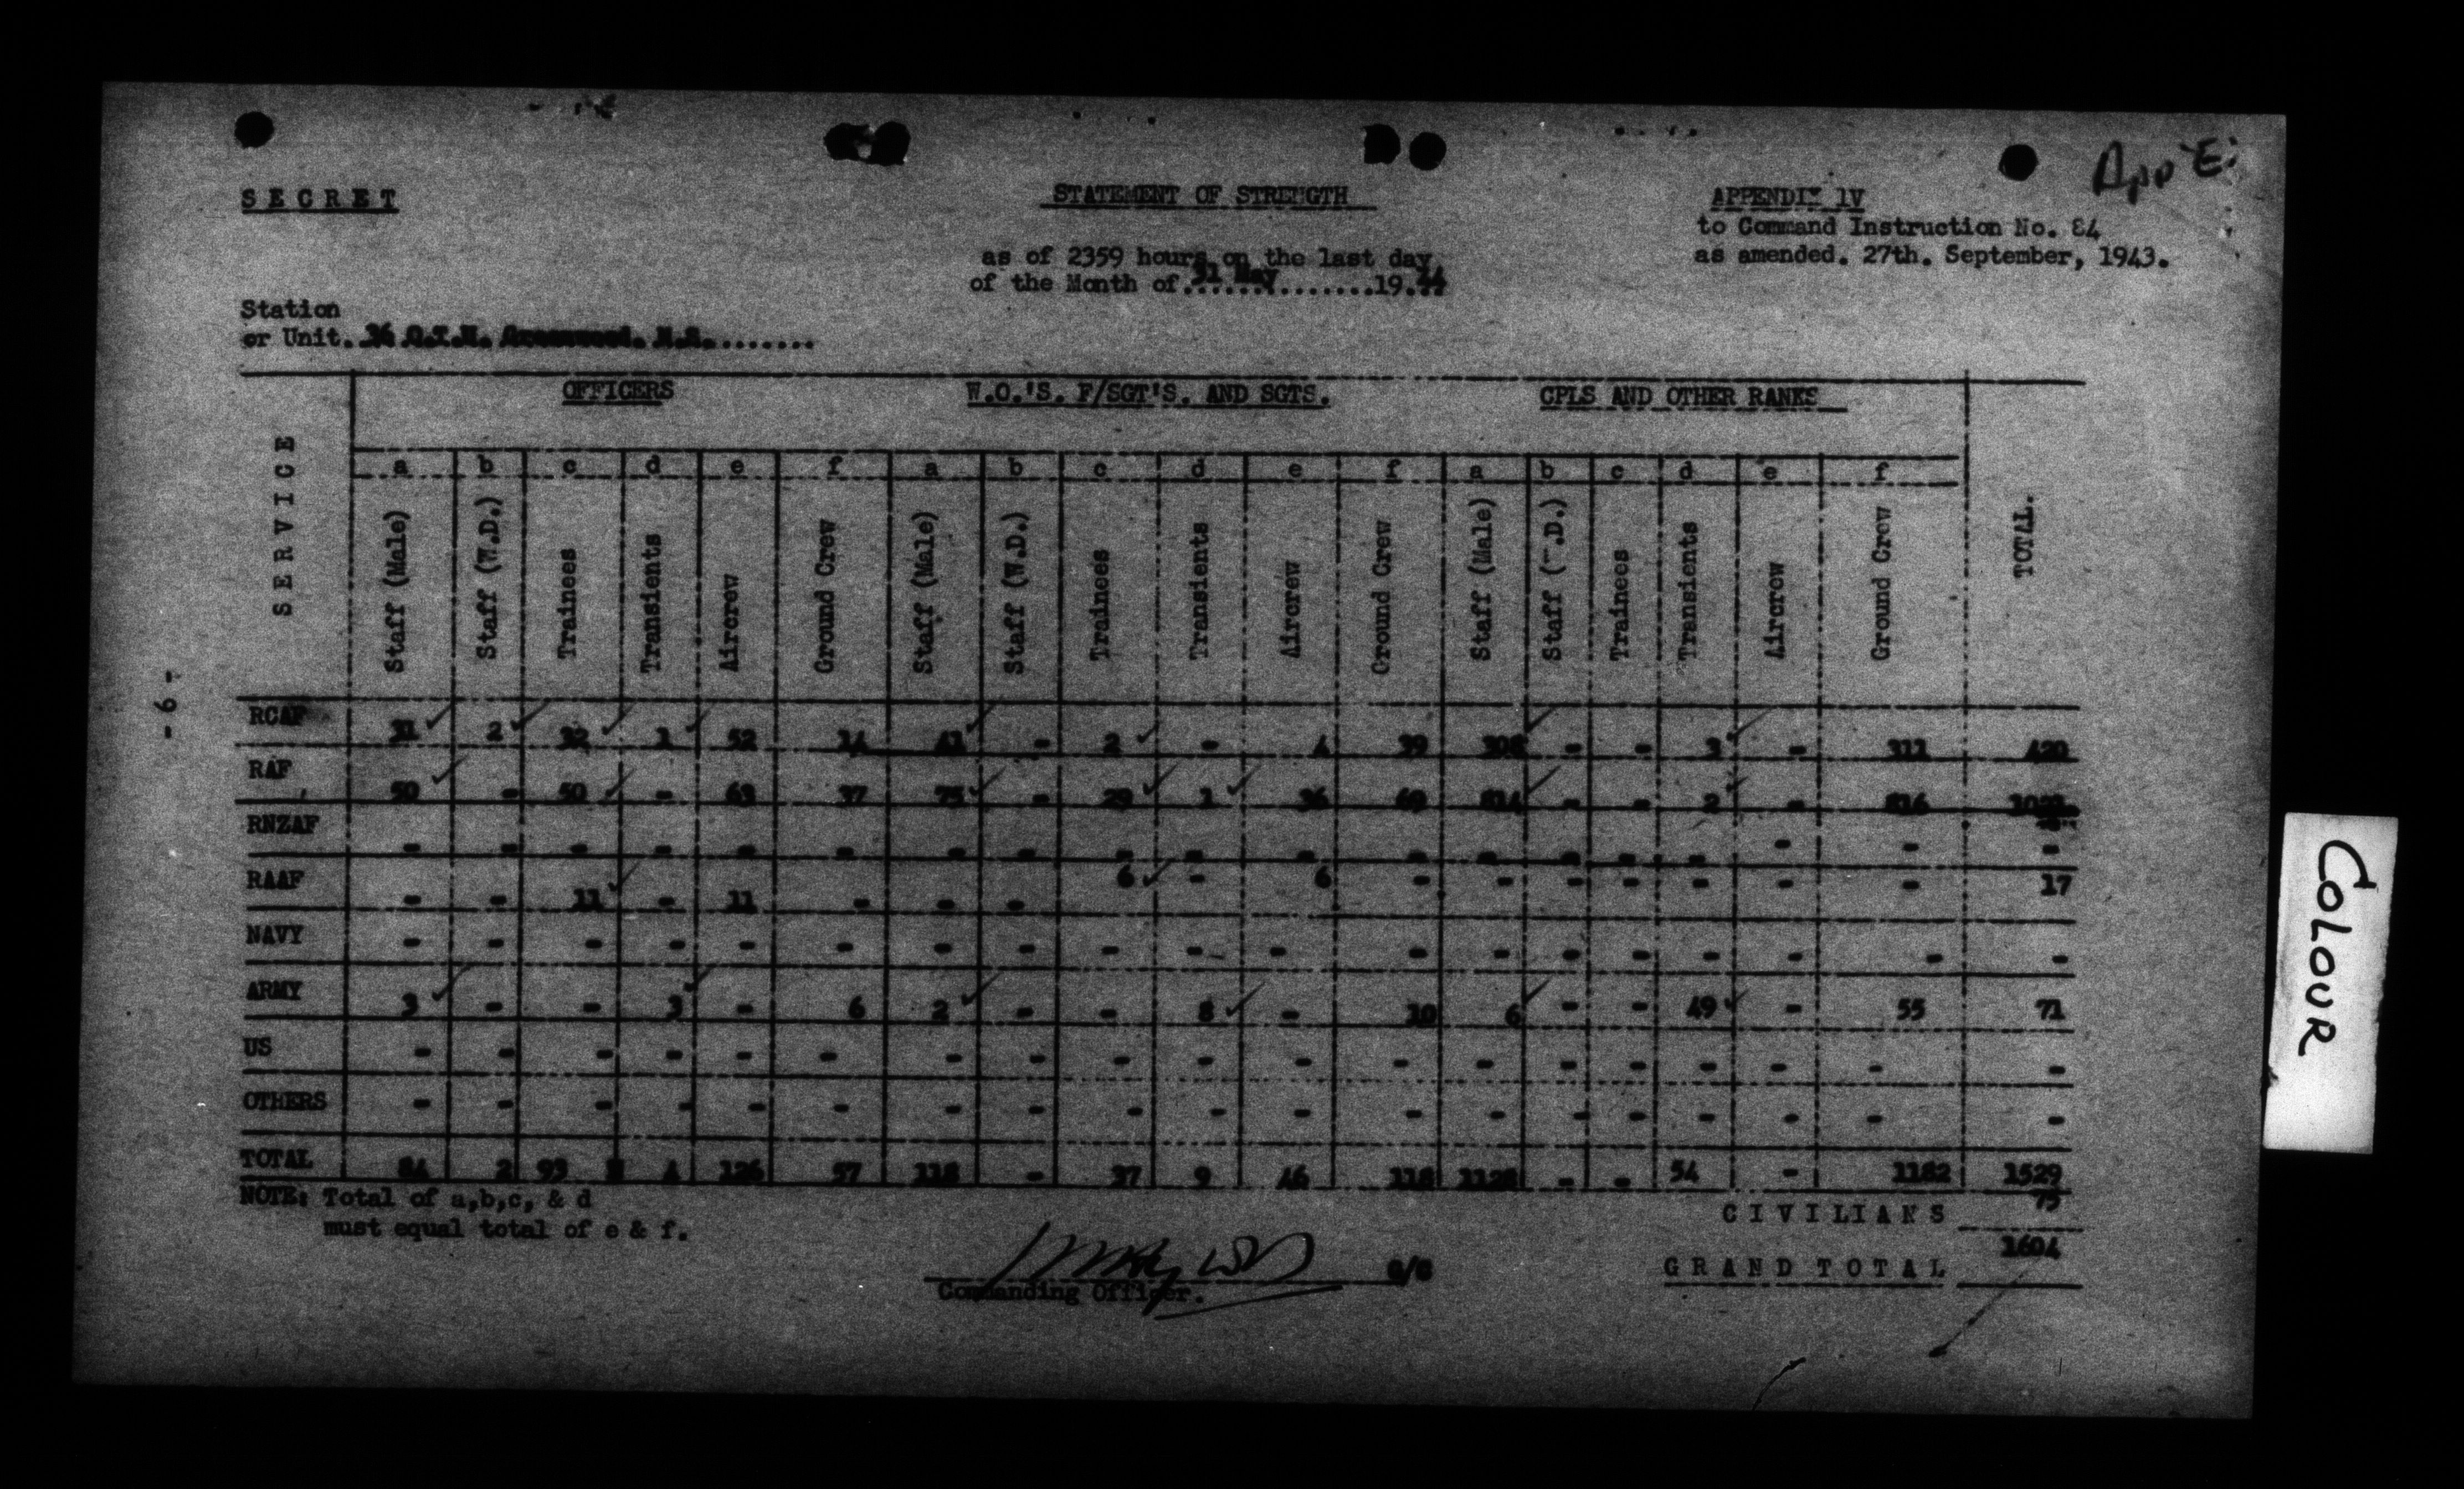 App E:
SECRET
STATEMENT OF STRENGTH
APPENDIX 1V
to Command Instruction No. 84
as amended. 27th. September, 1943.
as of 2359 hours on the last day
of the Month of 31 May 19 44
Station
or Unit. 36 O.T.U. Greenwood. N.S.
OFFICERS W.O.'S. F/SGT'S. AND SGTS. CPLS AND OTHER RANKS
SERVICE a b c d e f a b c d e f a b c d e f TOTAL.
Staff (Male) Staff (W.D.) Trainees Transients Aircrew Ground Crew Staff (Male) Staff (W.D.) Trainees Transients Aircrew Ground Crew Staff (Male) Staff (W.D.) Trainees Transients Aircrew Ground Crew
RCAF 31 2 32 1 52 14 41 - 2 - 4 39 308 - - 3 - 311 420
RAF 50 - 50 - 63 37 75 - 29 1 36 69 814 - - 2 - 816 1021
RNZAF - - - - - - - - - - - - - - - - - - -
RAAF - - 11 - 11 - - - 6 - 6 - - - - - - - 17
NAVY - - - - - - - - - - - - - - - - - - -
ARMY 3 - - 3 - 6 2 - - 8 - 10 6 - - 49 - 55 71
US - - - - - - - - - - - - - - - - - - -
OTHERS - - - - - - - - - - - - - - - - - - -
TOTAL 84 2 93 4 126 57 118 - 37 9 46 118 1128 - - 54 - 1182 1529
NOTE: Total of a,b,c, & d
must equal total of e & f.
CIVILIANS 75
GRAND TOTAL 1604
G/C
Commanding Officer.
- 6 -
COLOUR